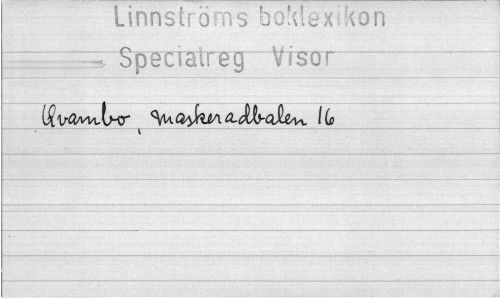 Linnströms boklexikon
Specialreg Visor
Qvambo, Maskeradbalen 16